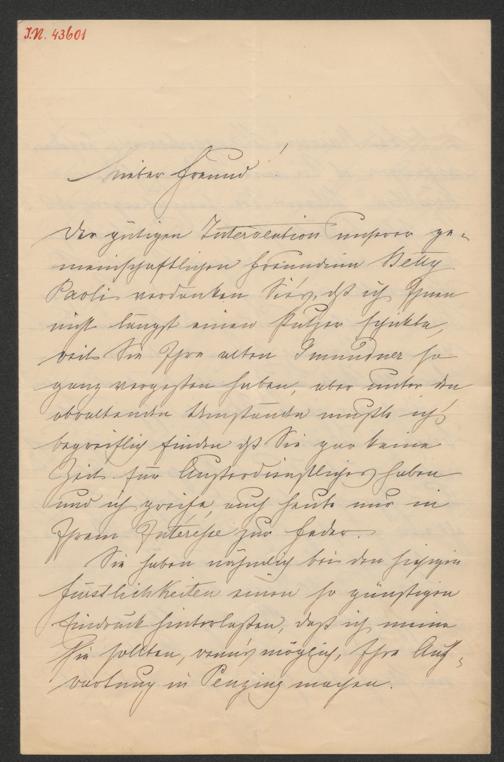 J.N. 43601
Lieber Freund!
Der gütigen Intervention unserer ge-
meinschaftlichen Freundin Betty
Paoli verdanken Sie's, dß ich Ihnen
nicht längst einen Putzer schickte,
weil Sie Ihre alten Gmundner so
ganz vergessen haben, aber unter den
obwaltenden Umständen mußte ich's
begreiflich finden dß Sie gar keine
Zeit für Außerdienstliches haben
und ich greife auch heute nur in
Ihrem Interesse zur Feder.
Sie haben nähmlich bei den hiesigen
Fürstlichkeiten einen so günstigen
Eindruck hinterlassen, daß ich meine
Sie sollten, wenn's möglich, Ihre Auf-
wartung in Penzing machen.